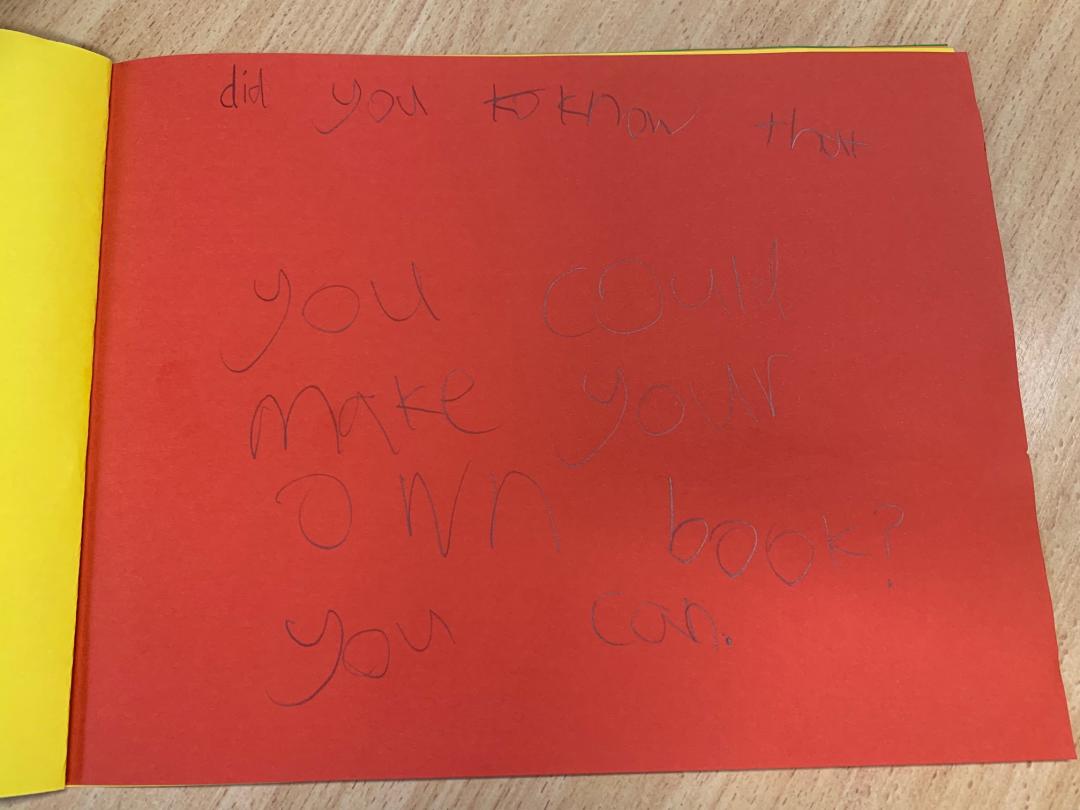 did you to know that
you could
make your
own book?
you can.